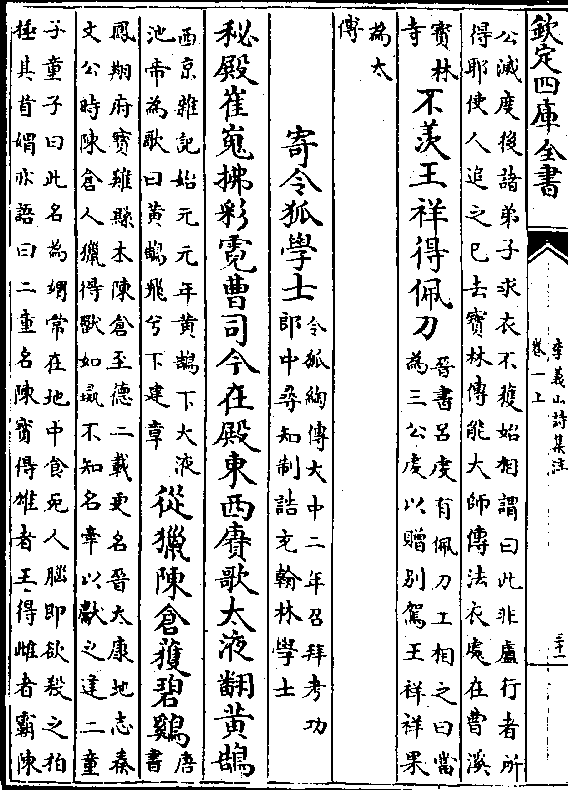 欽定四庫全書
李義山詩集注
卷一上
三十一
公滅度後諸弟子求衣不獲始相謂曰此非盧行者所
得耶使人追之已去寶林傳能大師傳法衣處在曹溪
寶林
寺
不羨王祥得佩刀
晉書呂虔有佩刀工相之曰當
為三公虔以贈別駕王祥祥果
為太
傅
寄令狐學士
令狐綯傳大中二年召拜考功
郎中尋知制誥充翰林學士
秘殿崔嵬拂彩霓曹司今在殿東西賡歌太液翻黃鵠
西京雜記始元元年黃鵠下太液
池帝為歌曰黃鵠飛兮下建章
從獵陳倉獲碧雞
唐書
鳳翔府寶雞縣本陳倉至德二載更名晉太康地志秦
文公時陳倉人獵得獸如彘不知名牽以獻之逢二童
子童子曰此名為媦常在地中食死人腦即欲殺之拍
捶其首媦亦語曰二童名陳寶得雄者王得雌者霸陳